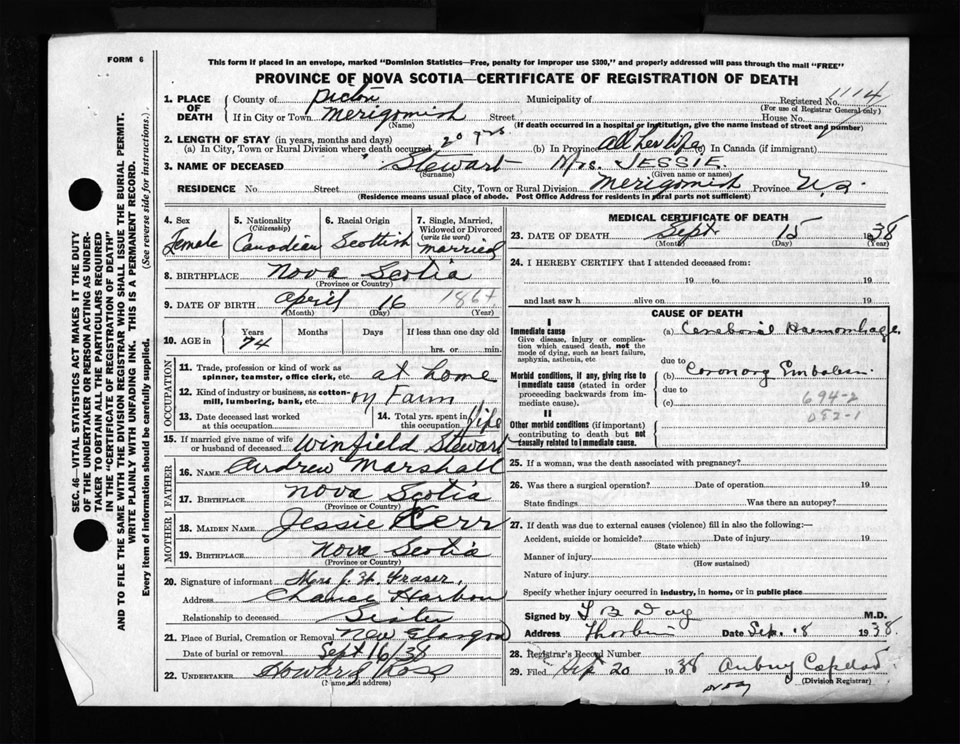 FORM 6
This form if placed in an envelope, marked "Dominion Statistics—Free, penalty for improper use $300," and properly addressed will pass through the mail "FREE"
PROVINCE OF NOVA SCOTIA—CERTIFICATE OF REGISTRATION OF DEATH
SEC. 46—VITAL STATISTICS ACT MAKES IT THE DUTY
OF THE UNDERTAKER OR PERSON ACTING AS UNDER-
TAKER TO OBTAIN ALL THE PARTICULARS REQUIRED
IN THE "CERTIFICATE OF REGISTRATION OF DEATH"
AND TO FILE THE SAME WITH THE DIVISION REGISTRAR WHO SHALL ISSUE THE BURIAL PERMIT.
WRITE PLAINLY WITH UNFADING INK. THIS IS A PERMANENT RECORD.
Every item of information should be carefully supplied. (See reverse side for instructions.)
1. PLACE OF DEATH
County of Pictou Municipality of Registered No. 1114
(For use of Registrar General only)
If in City or Town Merigomish Street House No.
(Name) (If death occurred in a hospital or institution, give the name instead of street and number)
2. LENGTH OF STAY (in years, months and days)
(a) In City, Town or Rural Division where death occurred 20 yrs. (b) In Province all her life (c) In Canada (if immigrant)
3. NAME OF DECEASED Stewart Mrs. JESSIE.
(Surname) (Given name or names)
RESIDENCE No. Street City, Town or Rural Division Merigomish Province N.S.
(Residence means usual place of abode. Post Office Address for residents in rural parts not sufficient)
4. Sex Female
5. Nationality (Citizenship) Canadian
6. Racial Origin Scottish
7. Single, Married, Widowed or Divorced (write the word) married
8. BIRTHPLACE Nova Scotia
(Province or Country)
9. DATE OF BIRTH April 16 1864
(Month) (Day) (Year)
10. AGE in Years 74 Months Days If less than one day old hrs. or min.
OCCUPATION
11. Trade, profession or kind of work as spinner, teamster, office clerk, etc. at home
12. Kind of industry or business, as cotton-mill, lumbering, bank, etc. on Farm
13. Date deceased last worked at this occupation
14. Total yrs. spent in this occupation life
15. If married give name of wife or husband of deceased Winfield Stewart
FATHER
16. NAME Andrew Marshall
17. BIRTHPLACE Nova Scotia
(Province or Country)
MOTHER
18. MAIDEN NAME Jessie Kerr
19. BIRTHPLACE Nova Scotia
(Province or Country)
20. Signature of informant Mrs J. W. Fraser,
Address Chance Harbour
Relationship to deceased Sister
21. Place of Burial, Cremation or Removal New Glasgow
Date of burial or removal Sept 16/38
22. UNDERTAKER Howard Ross
(Name and address)
MEDICAL CERTIFICATE OF DEATH
23. DATE OF DEATH Sept 15 1938
(Month) (Day) (Year)
24. I HEREBY CERTIFY that I attended deceased from:
19 to 19
and last saw h alive on 19
CAUSE OF DEATH
I
Immediate cause
Give disease, injury or complication which caused death, not the mode of dying, such as heart failure, asphyxia, asthenia, etc
(a) Cerebral Haemorrhage
due to
Morbid conditions, if any, giving rise to immediate cause (stated in order proceeding backwards from immediate cause).
(b) Coronary Embolism
due to
(c)
694-2
052-1
II
Other morbid conditions (if important) contributing to death but not causally related to immediate cause.
25. If a woman, was the death associated with pregnancy?
26. Was there a surgical operation? Date of operation 19
State findings Was there an autopsy?
27. If death was due to external causes (violence) fill in also the following:—
Accident, suicide or homicide? Date of injury 19
(State which)
Manner of injury
(How sustained)
Nature of injury
Specify whether injury occurred in industry, in home, or in public place
Signed by M.D.
Address Thorburn Date Sep. 18 1938.
28. Registrar's Record Number
29. Filed Sep 20 1938
(Division Registrar)